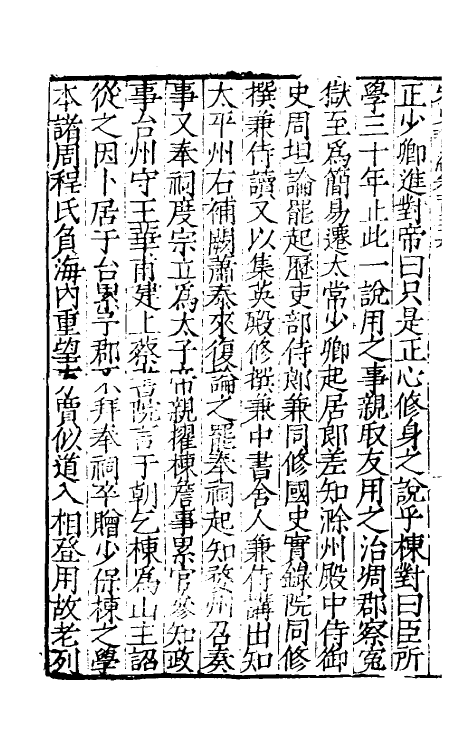 正少卿進對帝曰只是正心修身之說乎棟對曰臣所
學三十年止此一說用之事親取友用之治凋郡察寃
獄至爲簡易遷太常少卿起居郎差知滁州殿中侍御
史周坦論罷起歷吏部侍郎兼同修國史實錄院同修
撰兼侍讀又以集英殿修撰兼中書舍人兼侍講出知
太平州右補闕蕭泰來復論之罷奉祠起知婺州召奏
事又奉祠度宗立爲太子帝親擢棟詹事累官參知政
事台州守王華甫建上蔡書院言于朝乞棟爲山主詔
從之因卜居于台累予郡不拜奉祠卒贈少保棟之學
本諸周程氏負海內重望 賈似道入相登用故老列